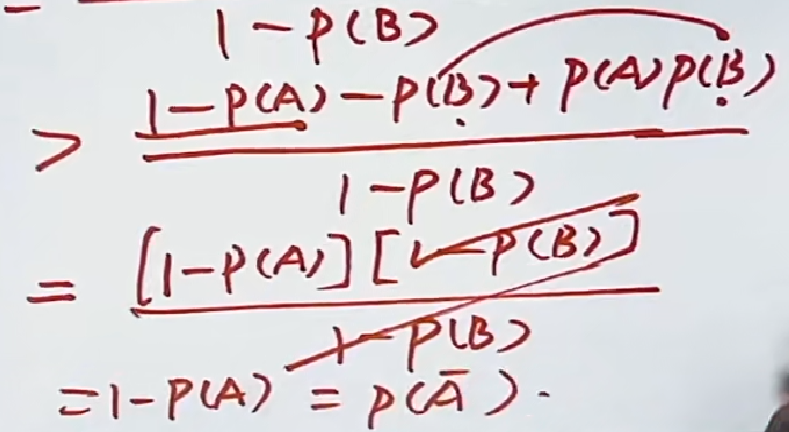 1-P(B)
> 1-P(A)-P(B)+P(A)P(B)
1-P(B)
= [1-P(A)][1-P(B)]
1-P(B)
=1-P(A) = P(Ā).